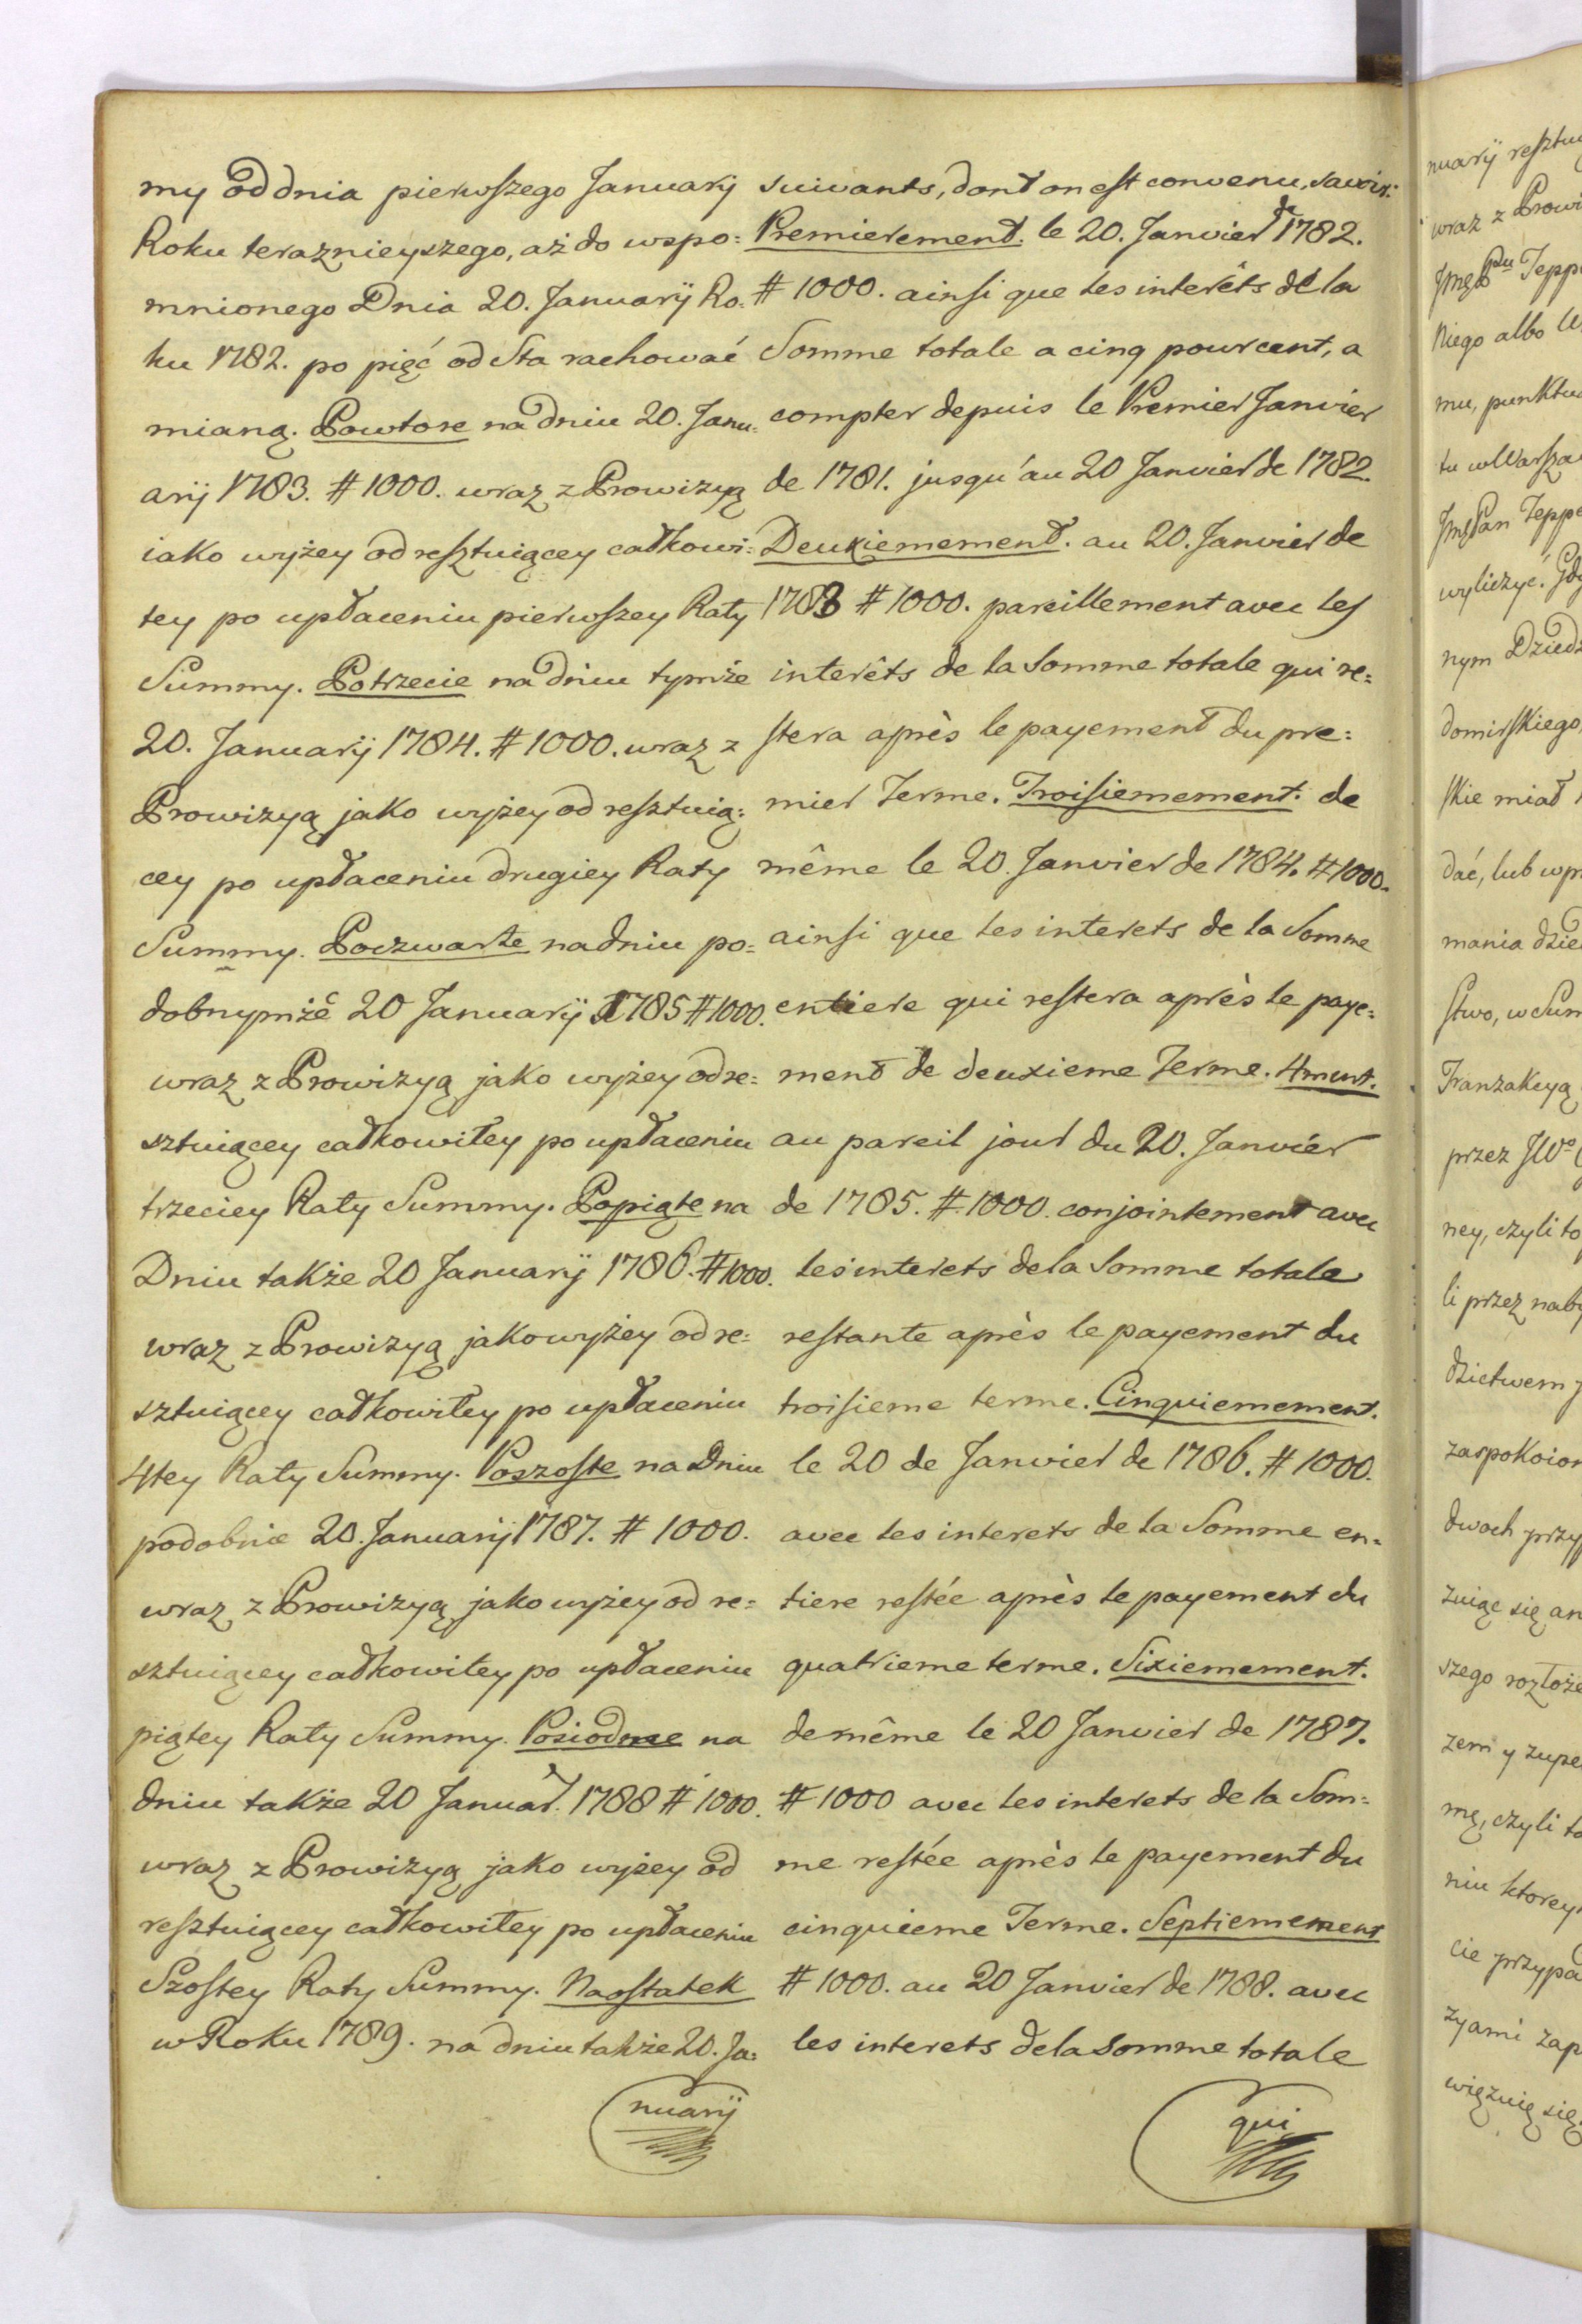 my od dnia pierwszego Januarij
Roku teraznieyszego, aż do wspo=
mnionego Dnia 20. Januarij Ro=
ku 1782. po pięć od Sta rachować
mianą. Powtore na dniu 20. Janu=
arij 1783. # 1000. wraz z Prowizyą
iako wyżey od resztuiącey całkowi=
tey po upłaceniu pierwszey Raty
Summy. Potrzecie na dniu tymże
20. Januarij 1784. # 1000. wraz z
Prowizyą jako wyżey od resztuią=
cey po upłaceniu drugiey Raty
Summy. Poczwarte na dniu po=
dobnymże 20 Januarij 1785 # 1000.
wraz z Prowizyą jako wyżey od re=
sztuiącey całkowitey po upłaceniu
trzeciey Raty Summy. Popiąte na
Dniu także 20 Januarij 1786. # 1000.
wraz z Prowizyą jako wyżey od re=
sztuiącey całkowitey po upłaceniu
4tey Raty Summy. Poszoste na Dniu
podobnie 20. Januarij 1787. # 1000.
wraz z Prowizyą jako wyżey od re=
sztuiącey całkowitey po upłaceniu
piątey Raty Summy. Posiodme na
dniu także 20 Januar. 1788 # 1000.
wraz z Prowizyą jako wyżey od
resztuiącey całkowitey po upłaceniu
Szostey Raty Summy. Naostatek
w Roku 1789. na dniu także 20. Ja=
nuarij
suivants, dont on est convenu, savoir:
Premierement. le 20. Janvier de 1782.
# 1000. ainsi que les interêts de la
Somme totale a cinq pour cent, a
compter depuis le Premier Janvier
de 1781. jusqu'au 20 Janvier de 1782.
Deuxiemement. au 20. Janvier de
1783 # 1000. pareillement avec les
interêts de la Somme totale qui re=
stera après le payement du pre=
mier Terme. Troisiemement. de
même le 20. Janvier de 1784. # 1000.
ainsi que les interets de la Somme
entiere qui restera après le paye=
ment de deuxieme Terme. 4ment.
au pareil jour du 20. Janvier
de 1785. # 1000. conjointement avec
les interets de la Somme totale
restante après le payement du
troisieme terme. Cinquiemement.
le 20 de Janvier de 1786. # 1000.
avec les interets de la Somme en=
tiere restée après le payement du
quatrieme terme. Sixiemement.
de même le 20 Janvier de 1787.
# 1000 avec les interets de la Som=
me restée après le payement du
cinquieme Terme. Septiemement
# 1000. au 20 Janvier de 1788. avec
les interets de la somme totale
qui
nuarij resztu
wraz z Prowi
Jmę Pu Teppe
Niego albo
mu, punktu
tu w Warsza
Jmę Pan Teppe
wyliczyć. Gdy
nym Dziedz
domirskiego,
skie miał
dać, lub wp
mania dzie
stwo, w Sum
Tranzakcyą
przez JWo
ney, czyli to
li przez naby
dzictwem
zaspokoion
dwoch przy
zuię się an
szego rozłoże
zem y zupe
mę, czyli to
niu ktorey
cie przypa
zyami zap
więzuię się